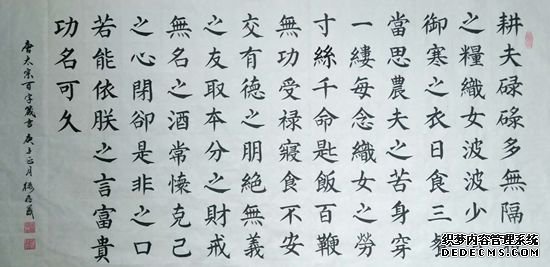 耕夫碌碌多無隔
之糧織女波波少
御寒之衣日食三
當思農夫之苦身穿
一縷每念織女之勞
寸絲千命匙飯百鞭
無功受祿寢食不安
交有德之朋絕無義
之友取本分之財戒
無名之酒常懷克己
之心閉卻是非之口
若能依朕之言富貴
功名可久
唐太宗百字箴言 庚子正月
织梦内容管理系统
DEDECMS.COM